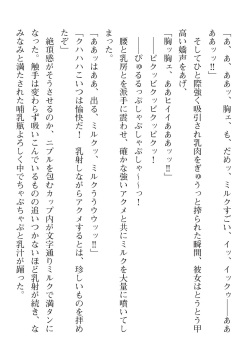 「あ、あ、ああッ、胸ェ、も、だめッ、ミルクすごい、イッ、イックゥ――ああ
ああッッ‼」
そしてひと際強く吸引され乳肉をぎゅうっと搾られた瞬間、彼女はとうとう甲
高い嬌声をあげ、
「胸ッ胸ェ、ああヒイイああああッッ‼」
――ビクッビクッビクッビクッ！
――びゅるるっぷしゃぷしゃ～～っ！
腰と乳房とを派手に震わせ、確かな強いアクメと共にミルクを大量に噴いてし
まった。
「ああッはああ、出る、ミルクッ、ミルクうううウウッッ‼」
「クハハハこいつは愉快だ！　乳射しながらアクメするとは、珍しいものを拝め
たぞ」
絶頂感がそうさせるのか、ニプルを包むカップ内が文字通りミルクで満タンに
なった。触手は変わらず吸いこんでいるものの追いつかないほど乳射が続き、な
みなみと満たされた哺乳瓶よろしく中でちゃぷちゃぷと乳汁が踊った。